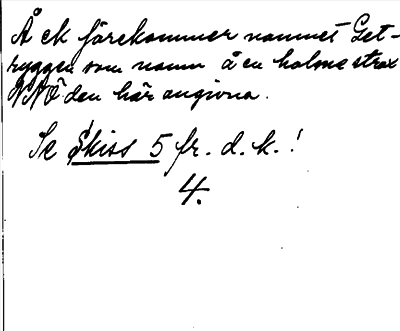 Å ek förekommer namnet Get-
ryggen som namn å en holme strax
NNÖ den här angivna.
Se Skiss 5 fr. d. k.!
4.